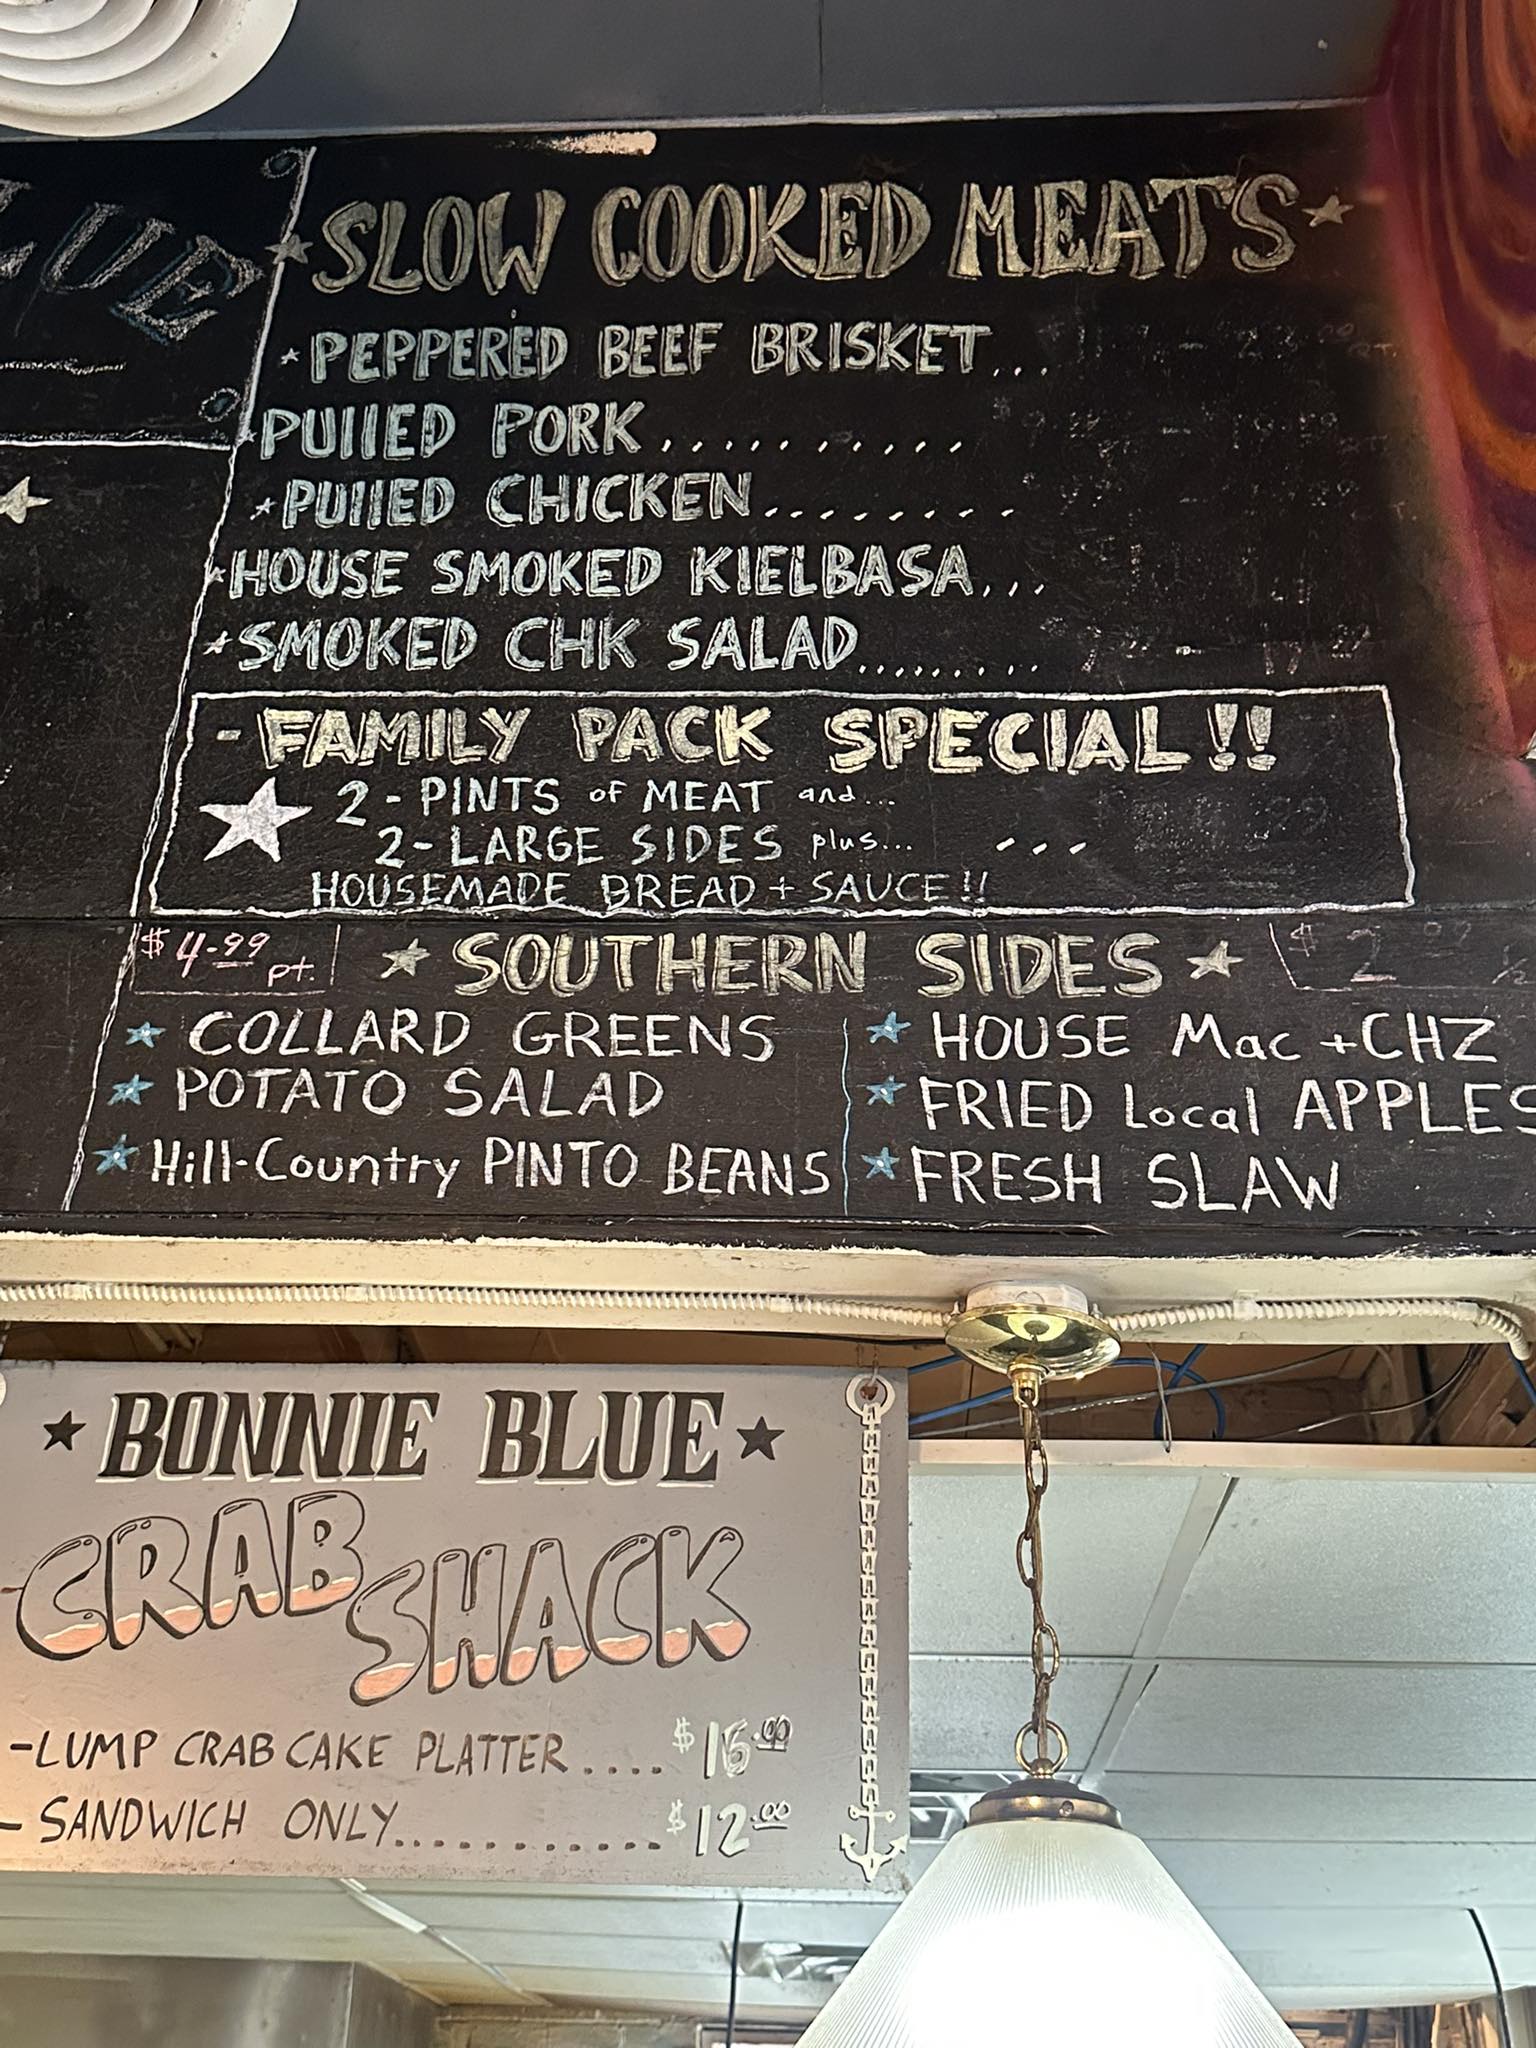 LUE
★ SLOW COOKED MEATS ★
★ PEPPERED BEEF BRISKET...
★ PULLED PORK...........
★ PULLED CHICKEN........
★ HOUSE SMOKED KIELBASA...
★ SMOKED CHK SALAD.........
- FAMILY PACK SPECIAL!!
★ 2-PINTS of MEAT and...
2-LARGE SIDES plus... ...
HOUSEMADE BREAD + SAUCE!!
$4.99 pt. ★ SOUTHERN SIDES ★ $2
★ COLLARD GREENS ★ HOUSE Mac + CHZ
★ POTATO SALAD ★ FRIED Local APPLES
★ Hill-Country PINTO BEANS ★ FRESH SLAW
★ BONNIE BLUE ★
CRAB
SHACK
- LUMP CRAB CAKE PLATTER.... $16.00
- SANDWICH ONLY............. $12.00